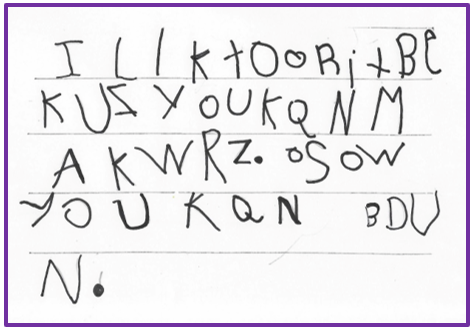 I LIK tO oRit BC
KUS YOU KQN M
A KWRZ. oSOW
YOU KQN BDU
N.